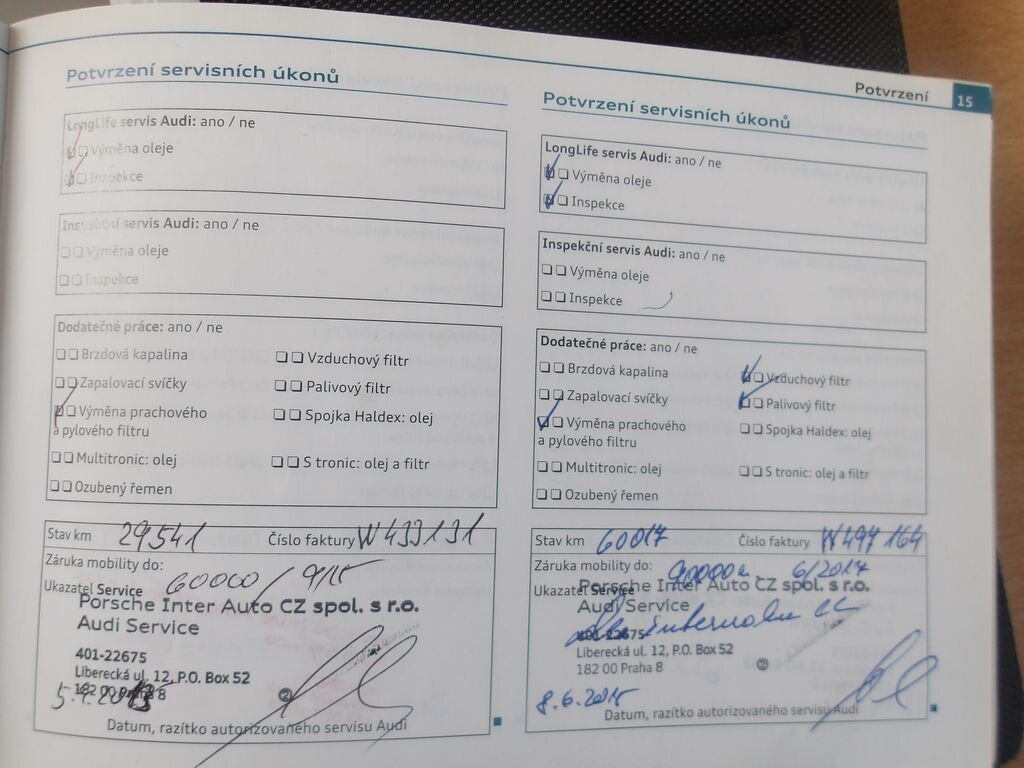 Potvrzení 15
Potvrzení servisních úkonů
LongLife servis Audi: ano / ne
Výměna oleje
Inspekce
Inspekční servis Audi: ano / ne
Výměna oleje
Inspekce
Dodatečné práce: ano / ne
Brzdová kapalina
Vzduchový filtr
Zapalovací svíčky
Palivový filtr
Výměna prachového
a pylového filtru
Spojka Haldex: olej
Multitronic: olej
S tronic: olej a filtr
Ozubený řemen
Stav km 29541 Číslo faktury W433131
Záruka mobility do:
60000 / 9/15
Ukazatel Service
Porsche Inter Auto CZ spol. s r.o.
Audi Service
401-22675
Liberecká ul. 12, P.O. Box 52
182 00 Praha 8
Datum, razítko autorizovaného servisu Audi
Potvrzení servisních úkonů
LongLife servis Audi: ano / ne
Výměna oleje
Inspekce
Inspekční servis Audi: ano / ne
Výměna oleje
Inspekce
Dodatečné práce: ano / ne
Brzdová kapalina
Vzduchový filtr
Zapalovací svíčky
Palivový filtr
Výměna prachového
a pylového filtru
Spojka Haldex: olej
Multitronic: olej
S tronic: olej a filtr
Ozubený řemen
Stav km 60017 Číslo faktury W497164
Záruka mobility do: 6/2017
Ukazatel Service
Porsche Inter Auto CZ spol. s r.o.
Audi Service
dle intervalu
401-22675
Liberecká ul. 12, P.O. Box 52
182 00 Praha 8
8.6.2015
Datum, razítko autorizovaného servisu Audi